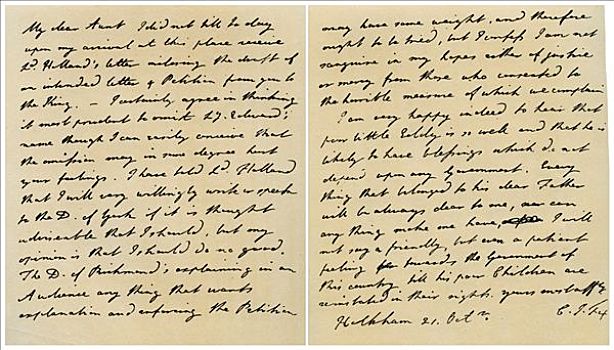 My dear Aunt I did not till to day
upon my arrival at this place receive
Ld. Holland's letter inclosing the draft of
an intended letter & Petition from you to
the King. — I certainly agree in thinking
it most prudent to omit Ld. Edward's
name though I can easily conceive that
the omission may in some degree hurt
your feelings. I have told Ld. Holland
that I will very willingly write or speak
to the D. of York if it is thought
adviseable that I should, but my
opinion is that I should do no good.
The D. of Richmond's explaining in an
Audience any thing that wants
explanation and enforcing the Petition
may have some weight, and therefore
ought to be tried, but I confess I am not
sanguine in my hopes either of justice
or mercy from those who consented to
the horrible measure of which we complain
I am very happy indeed to hear that
poor little Eddy is so well and that he is
likely to have blessings which do not
depend upon any Government. Every
thing that belonged to his dear Father
will be always dear to me, nor can
any thing make me have, I will
not say a friendly, but even a patient
feeling towards the Government of
this country till his poor Children are
reinstated in their rights. yours most affly
Holkham 21. Oct. C. J. Fox